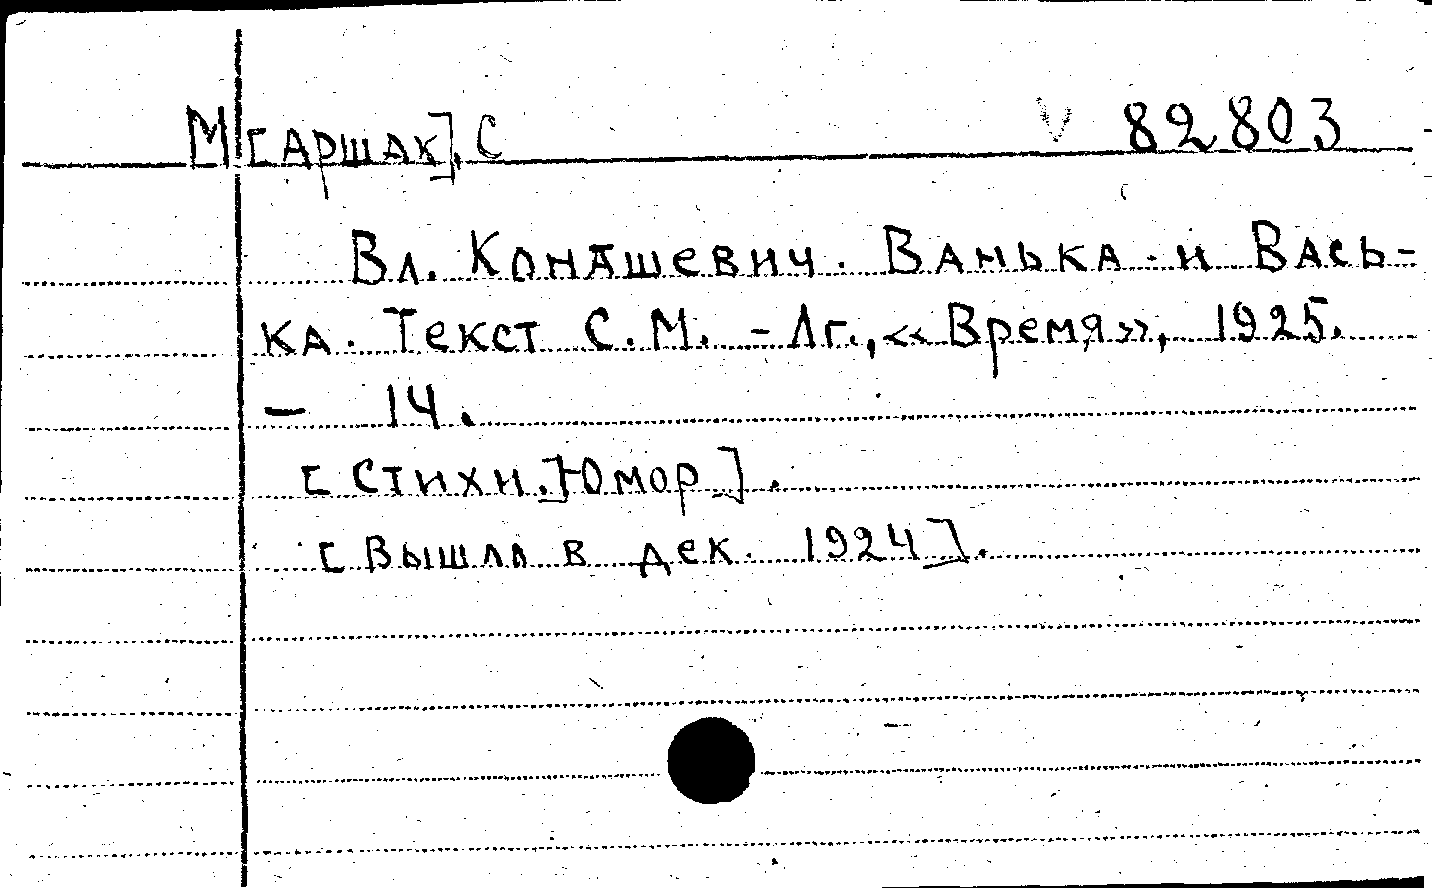 М[аршак], С 82803
Вл. Конашевич. Ванька и Вась-
ка. Текст С.М. - Лг., «Время», 1925.
- 14.
[Стихи.] Юмор].
[Вышла в дек. 1924].